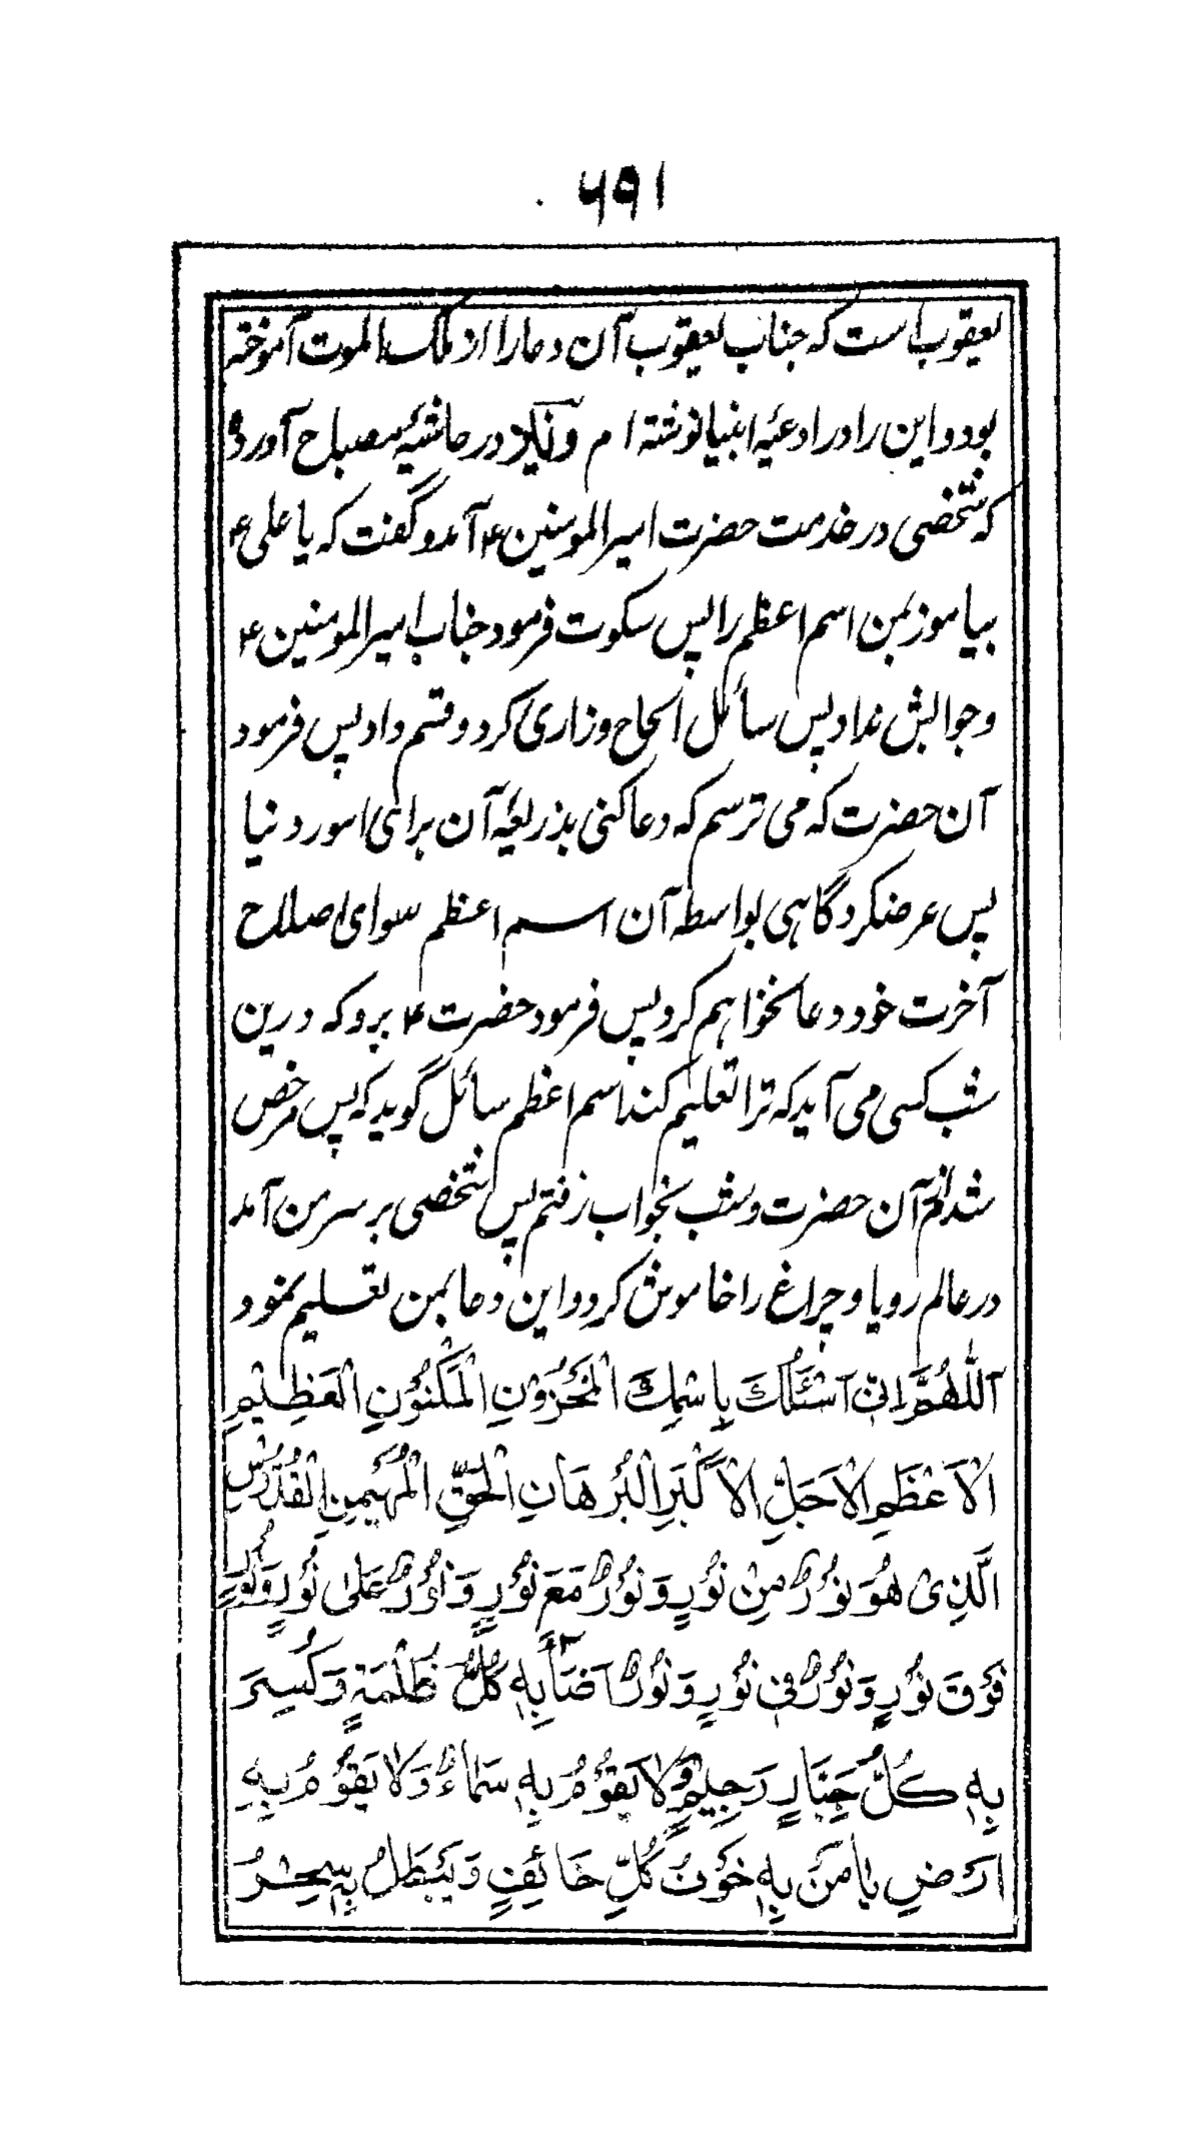 ۶۹۱
یعقوب است که جناب یعقوب آن دعا را از ملک الموت آموخته
بود و این را در ادعیه انبیا نوشته ام و نیز در حاشیهٔ مصباح آورده
که شخصی در خدمت حضرت امیر المومنین ۴ آمد و گفت که یا علی ۴
بیاموز بمن اسم اعظم را پس سکوت فرمود جناب امیر المومنین ۴
و جوابش نداد پس سائل الحاح و زاری کرد و قسم داد پس فرمود
آن حضرت که می ترسم که دعا کنی بذریعهٔ آن برای امور دنیا
پس عرضکرد گاهی بواسطه آن اسم اعظم سوای اصلاح
آخرت خود دعا نخواهم کرد پس فرمود حضرت ۴ برو که درین
شب کسی می آید که ترا تعلیم کند اسم اعظم سائل گوید که پس مرخص
شدم از آن حضرت و شب بخواب رفتم پس شخصی بر سر من آمد
در عالم رویا و چراغ را خاموش کرد و این دعا بمن تعلیم نمود
اَللّٰهُمَّ اِنِّیْ اَسْئَلُكَ بِاسْمِكَ الْمَخْزُوْنِ الْمَكْنُوْنِ الْعَظِیْمِ
الْاَعْظَمِ الْاَجَلِّ الْاَكْبَرِ الْبُرْهَانِ الْحَقِّ الْمُهَیْمِنِ الْقُدُّوْسِ
الَّذِیْ هُوَ نُوْرٌ مِنْ نُوْرٍ وَ نُوْرٌ مَعَ نُوْرٍ وَ نُوْرٌ عَلٰی نُوْرٍ وَ نُوْرٌ
فَوْقَ نُوْرٍ وَ نُوْرٌ فِیْ نُوْرٍ وَ نُوْرٌ اَضَآءَ بِهٖ كُلُّ ظُلْمَةٍ وَ كُسِرَ
بِهٖ كُلُّ جَبَّارٍ رَجِیْمٍ وَ لَا یَقُوْمُ بِهٖ سَمَاءٌ وَ لَا یَقُوْمُ بِهٖ
اَرْضٍ یَا مَنْ بِهٖ خَوْفُ كُلِّ خَائِفٍ وَ یَبْطُلُ بِهٖ سِحْرُ